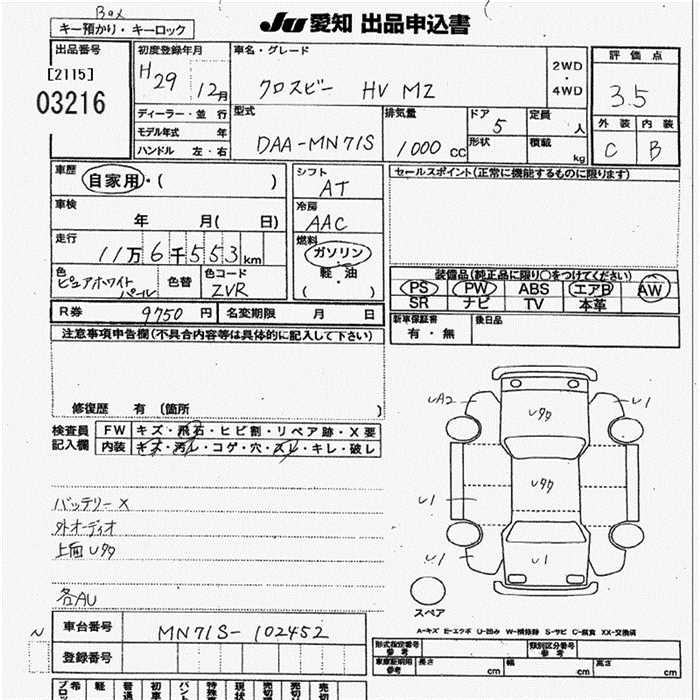 Box
キー預かり・キーロック
JU 愛知 出品申込書
出品番号
[2115]
03216
初度登録年月
H29 12月
車名・グレード
クロスビー HV MZ
2WD
・
4WD
評価点
3.5
外装 内装
C B
ディーラー・並 行
モデル年式 年
ハンドル 左・右
型式
DAA-MN71S
排気量
1000 cc
ドア
5
形状
定員
人
積載
kg
車歴
自家用・( )
車検
年 月( 日)
走行
11万6千553km
色
ピュアホワイト
パール
色替
色コード
ZVR
シフト
AT
冷房
AAC
燃料
ガソリン
軽・油
( ・ )
セールスポイント(正常に機能するものに限ります)
装備品(純正品に限り○をつけてください)
PS PW ABS エアB AW
SR ナビ TV 本革
新車保証書
有・無
後日品
R券 9750 円
名変期限 月 日
注意事項申告欄(不具合内容等は具体的に記入して下さい)
修復歴 有 〔箇所 〕
検査員
記入欄
FW キズ・飛石・ヒビ割・リペア跡・X要
内装 キズ・汚レ・コゲ・穴・スレ・キレ・破レ
バッテリーX
外オーディオ
上面Uタタ
各AU
UA2
Uタタ
U1
U1
Uタタ
U1
U1
スペア
A-キズ E-エクボ U-凹み W-補修跡 S-サビ C-腐食 XX-交換済
車台番号
MN71S-102452
N
登録番号
形式指定番号
参考
類別区分番号
参考
車庫証明用
参考
長さ cm 幅 cm 高さ cm